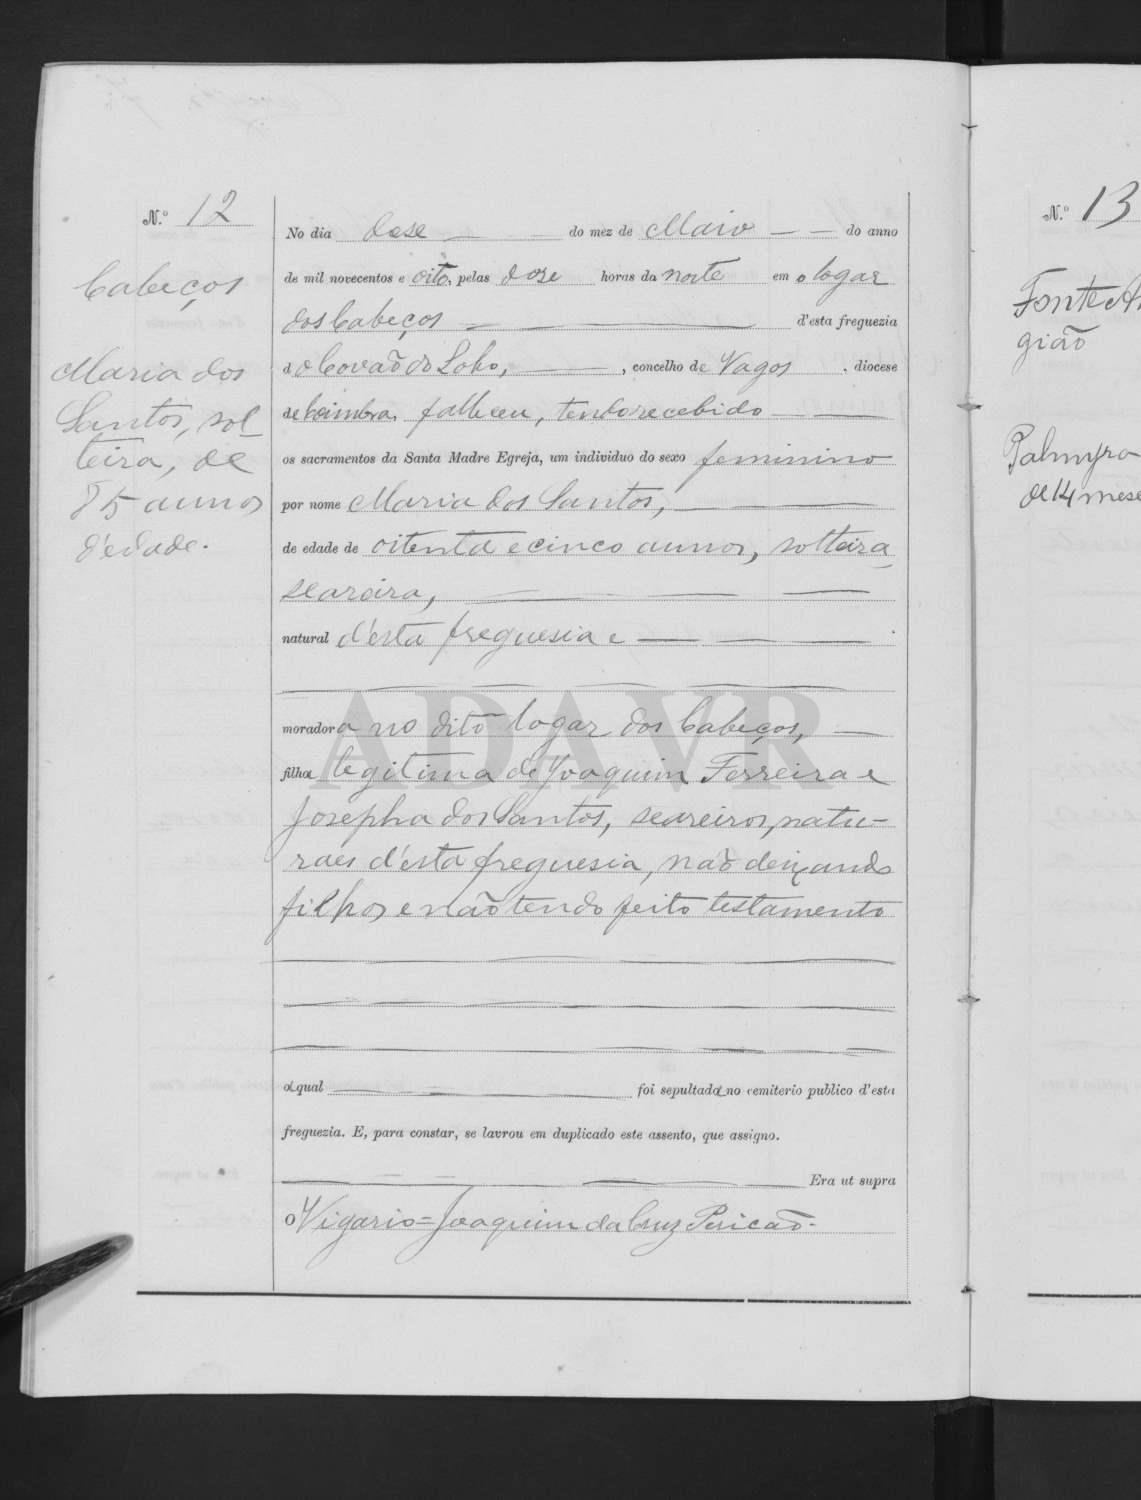 N.º 12
Cabeços
Maria dos
Santos, sol_
teira, de
85 annos
d'edade.
No dia dose do mez de Maio do anno
de mil novecentos e oito, pelas doze horas da noite em o logar
dos Cabeços d'esta freguezia
do Covão do Lobo, , concelho de Vagos . diocese
de Coimbra, falleceu, tendo recebido
os sacramentos da Santa Madre Egreja, um individuo do sexo feminino
por nome Maria dos Santos,
de edade de oitenta e cinco annos, solteira,
seareira,
natural d'esta freguesia e
moradora no dito logar dos Cabeços,
filha legitima de Joaquim Ferreira e
Josepha dos Santos, seareiros, natu-
raes d'esta freguesia, não deixando
filhos e não tendo feito testamento
a qual foi sepultada no cemiterio publico d'esta
freguezia. E, para constar, se lavrou em duplicado este assento, que assigno.
Era ut supra
O Vigario = Joaquim da Cruz Pericão.
ADAVR
N.º 13
Fonte An
gião
Palmyra
de 14 mese